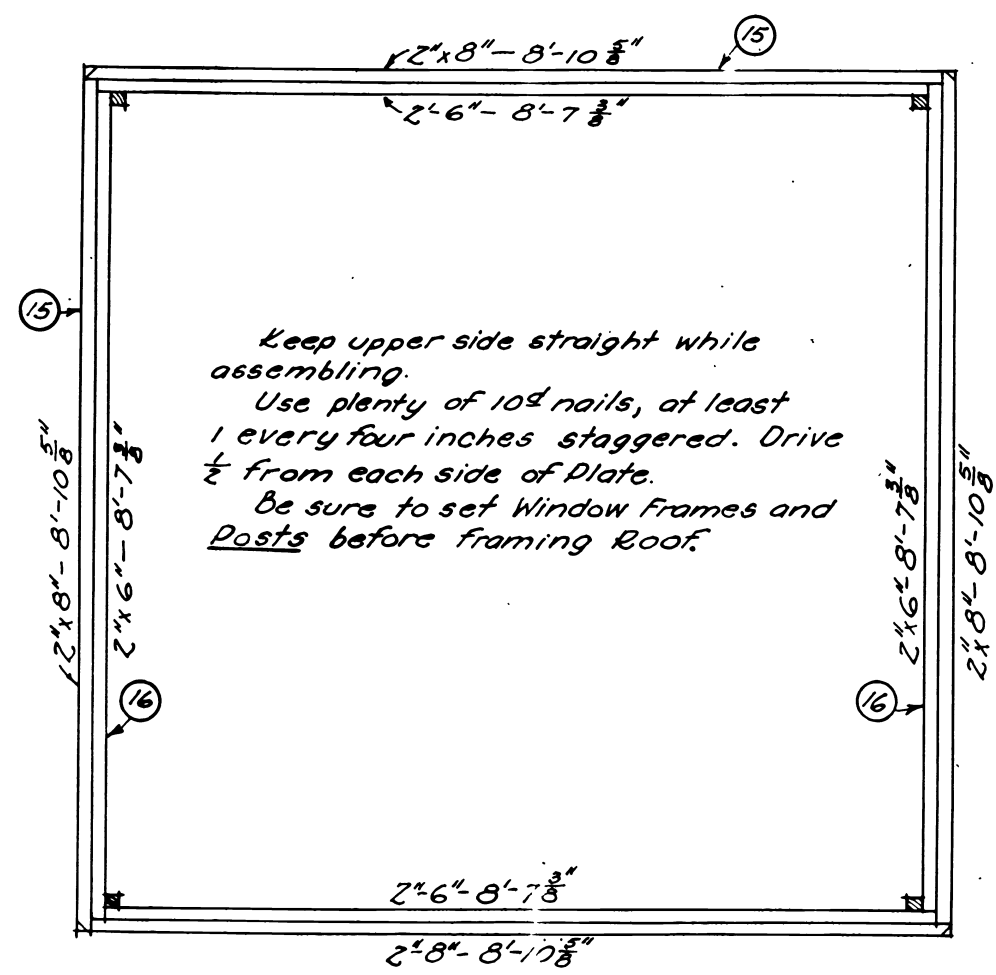 15
2"x8"- 8'-10 5/8"
2'-6"- 8'-7 3/8"
15
2"x8"- 8'-10 5/8"
2"x6"- 8'-7 3/8"
Keep upper side straight while
assembling.
Use plenty of 10d nails, at least
1 every four inches staggered. Drive
1/2 from each side of Plate.
Be sure to set Window Frames and
Posts before framing Roof.
2"x6"-8'-7 3/8"
2"x8"-8'-10 5/8"
16
16
2"-6"-8'-7 3/8"
2"-8"-8'-10 5/8"